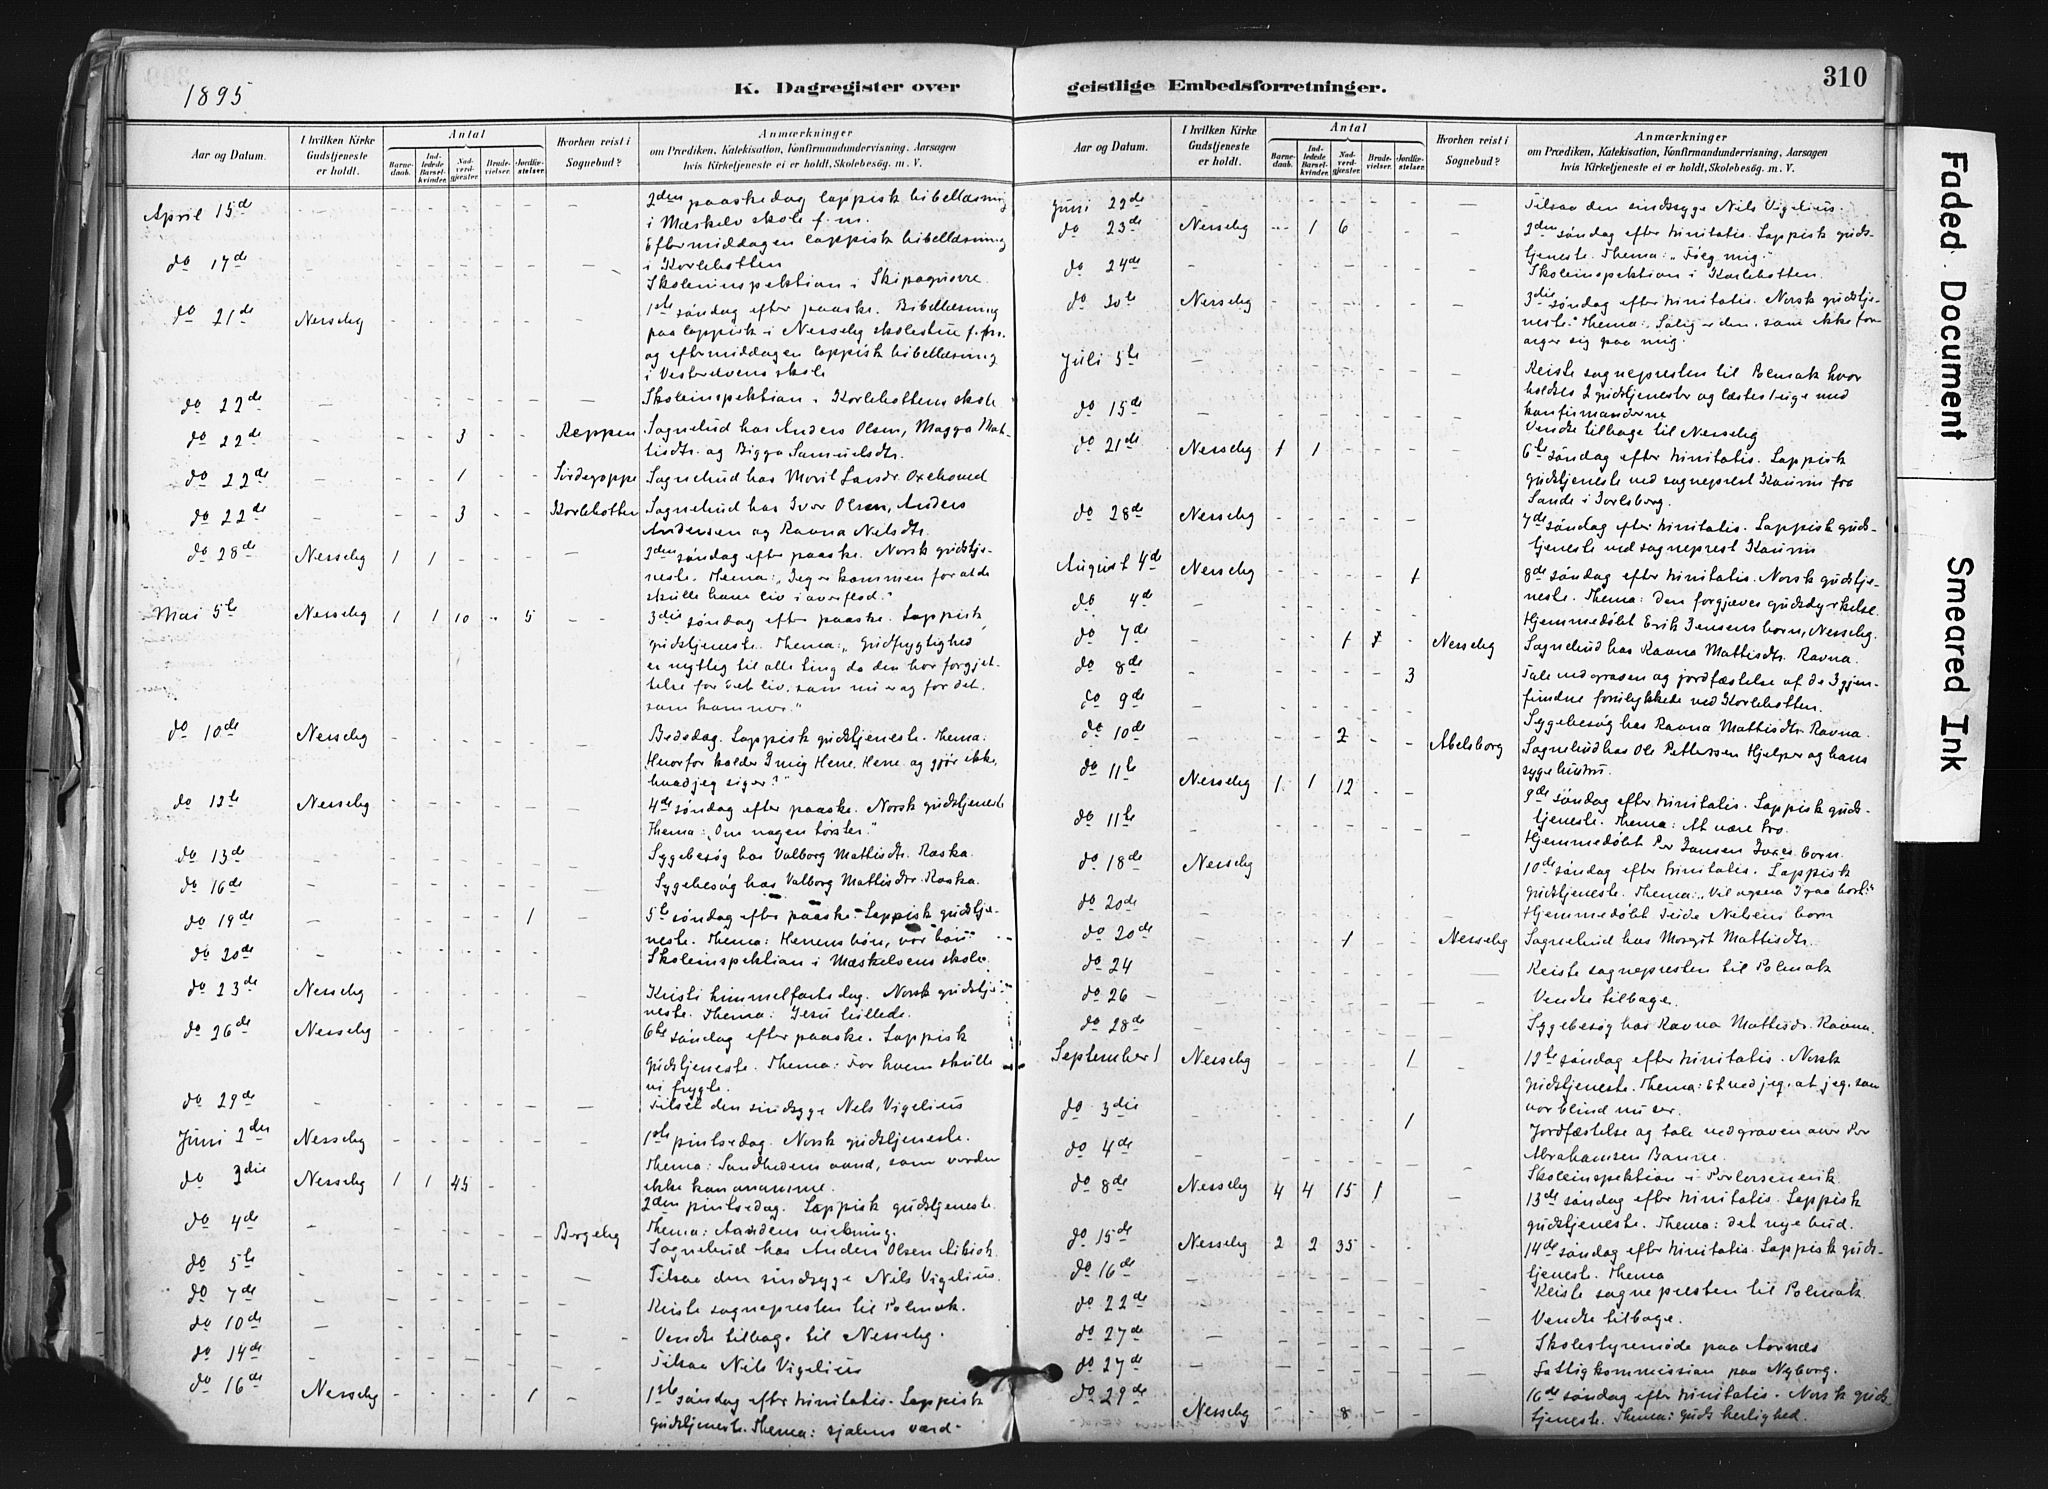 1895
K. Dagregister over
geistlige Embedsforretninger.
310
Aar og Datum.
I hvilken Kirke Gudstjeneste er holdt.
Antal
Barnedaab.
Indledede Barselkvinder.
Nadverdgjester.
Brudevielser.
Jordfæstelser.
Hvorhen reist i Sognebud?
Anmærkninger
om Prædiken, Katekisation, Konfirmandundervisning, Aarsagen
hvis Kirketjeneste ei er holdt, Skolebesøg. m. V.
April 15de - - - - - - - 2den paaskedag lappisk bibellæsning
i Mæskelv skole f.m.
Eftermiddagen lappisk bibellæsning
i Korlebotten
do 17de - - - - - - - Skoleinspektion i Skipagurre.
do 21de Nesseby - - - - - - 1ste søndag efter paaske. Bibellæsning
paa lappisk i Nesseby skolestue f.m.
og eftermiddagen lappisk bibellæsning
i Vesterelvens skole
do 22de - - - - - - - Skoleinspektion i Korlebottens skole
do 22de - - - 3 - - Reppen Sognebud hos Anders Olsen, Magga Mat-
tisdtr. og Bigga Samuelsdtr.
do 22de - - - 1 - - Sognebud hos Marit Larsdr
do 22de - - - 3 - - Korlebotten Sognebud hos Iver Olsen, Anders
Andersen og Ravna Nilsdtr.
do 28de Nesseby 1 1 - - - - 2den søndag efter paaske. Norsk gudstje-
neste. Thema: "Jeg er kommen for at de
skulle have liv i overflod."
Mai 5te Nesseby 1 1 10 - 5 - 3die søndag efter paaske. Lappisk
gudstjeneste. Thema: "Gudfrygtighed
er nyttig til alle ting da den har forgjet-
telse for det liv, som nu er og for det,
som kommer."
do 10de Nesseby - - - - - - Bededag. Lappisk gudstjeneste. Thema:
"Hvorfor kalder I mig Herre, Herre og gjør ikke,
hvad jeg siger?"
do 12te Nesseby - - - - - - 4de søndag efter paaske. Norsk gudstjeneste
Thema: "Om nogen tørster."
do 13de - - - - - - - Sygebesøg hos Valborg Mattisdtr. Raska.
do 16de - - - - - - - Sygebesøg hos Valborg Mattisdtr. Raska.
do 19de - - - - - 1 - 5te søndag efter paaske. Lappisk gudstje-
neste. Thema: Herrens bøn, vor bøn
do 20de - - - - - - - Skoleinspektion i Mæskelvens skole.
do 23de Nesseby - - - - - - Kristi himmelfartsdag. Norsk gudstje-
neste. Thema: Jesu billede.
do 26de Nesseby - - - - - - 6te søndag efter paaske. Lappisk
gudstjeneste. Thema: For hvem skulle
vi frygte.
do 29de - - - - - - - Tilset den sindsyge Nils Vigelius
Juni 2den Nesseby - - - - - - 1ste pintsedag. Norsk gudstjeneste.
Thema: Sandhedens aand, som verden
ikke kan anamme.
do 3die Nesseby 1 1 45 - - 2den pintsedag. Lappisk gudstjeneste.
Thema: Aandens virkning.
do 4de - - - - - - Bergeby Sognebud hos Anders Olsen
do 5te - - - - - - - Tilsaa den sindsyge Nils Vigelius.
do 7de - - - - - - - Reiste sognepresten til Polmak.
do 10de - - - - - - - Vendte tilbage til Nesseby.
do 14de - - - - - - - Tilsaa Nils Vigelius
do 16de Nesseby - - - - 1 - 1ste søndag efter trinitatis. Lappisk
gudstjeneste. Thema: sjælens værd.
Aar og Datum.
I hvilken Kirke Gudstjeneste er holdt.
Antal
Barnedaab.
Indledede Barselkvinder.
Nadverdgjester.
Brudevielser.
Jordfæstelser.
Hvorhen reist i Sognebud?
Anmærkninger
om Prædiken, Katekisation, Konfirmandundervisning, Aarsagen
hvis Kirketjeneste ei er holdt, Skolebesøg. m. V.
Juni 22de - - - - - - - Tilsaa den sindsyge Nils Vigelius.
do 23de Nesseby - 1 6 - - - 2den søndag efter trinitatis. Lappisk guds-
tjeneste. Thema: "Følg mig."
do 24de - - - - - - - Skoleinspektion i Korlebotten.
do 30te Nesseby - - - - - - 3die søndag efter trinitatis. Norsk gudstje-
neste. Thema: Salig er den, som ikke for-
arger sig paa mig.
Juli 5te - - - - - - - Reiste sognepresten til Polmak hvor
holdtes 2 gudstjenester og læstes 1 uge med
konfirmanderne
do 15de - - - - - - - Vendte tilbage til Nesseby
do 21de Nesseby 1 1 - - - - 6te søndag efter trinitatis. Lappisk
gudstjeneste ved sogneprest Kaurin fra
Sande i Jarlsberg.
do 28de Nesseby - - - - - - 7de søndag efter trinitatis. Lappisk guds-
tjeneste ved sogneprest Kaurin
August 4de Nesseby - - - - 1 - 8de søndag efter trinitatis. Norsk gudstje-
neste. Thema: Den forgjæves gudsdyrkelse.
do 4de - - - - - - - Hjemmedøbt Erik Jensens barn, Nesseby.
do 7de - - - 1 - - Nesseby Sognebud hos Ravna Mattisdtr. Ravna.
do 8de - - - - - 3 - Tale ved graven og jordfæstelse af de 3 gjen-
fundne forulykkede ved Korlebotten.
do 9de - - - - - - - Sygebesøg hos Ravna Mattisdtr. Ravna.
do 10de - - - 2 - - Abelsborg Sognebud hos Ole Pettersen Hjelper og hans
syge hustru.
do 11te Nesseby 1 1 12 - - - 9de søndag efter trinitatis. Lappisk guds-
tjeneste. Thema: At være tro.
do 11te - - - - - - - Hjemmedøbt Per Jansen barn.
do 18de Nesseby - - - - - - 10de søndag efter trinitatis. Lappisk
gudstjeneste. Thema: "Vil ogsaa I gaa bort."
do 20de - - - - - - - Hjemmedøbt Nilsens barn
do 20de - - - 1 - - Nesseby Sognebud hos Margit Mattisdtr.
do 24 - - - - - - - Reiste sognepresten til Polmak
do 26 - - - - - - - Vendte tilbage.
do 28de - - - - - - - Sygebesøg hos Ravna Mattisdtr. Ravna.
September 1 Nesseby - - - - 1 - 12te søndag efter trinitatis. Norsk
gudstjeneste. Thema: Et ved jeg, at jeg, som
var blind nu ser.
do 3die - - - - - 1 - Jordfæstelse og tale ved graven over Per
Abrahamsen Banne.
do 4de - - - - - - - Skoleinspektion i
do 8de Nesseby 4 4 15 1 - - 13de søndag efter trinitatis. Lappisk
gudstjeneste. Thema: det nye bud.
do 15de Nesseby 2 2 35 - - - 14de søndag efter trinitatis. Lappisk guds-
tjeneste. Thema
do 16de - - - - - - - Reiste sognepresten til Polmak.
do 22de - - - - - - - Vendte tilbage.
do 27de - - - - - - - Skolestyremøde paa
do 27de - - - - - - - Fattigkommission paa Nyborg.
do 29de Nesseby - - 8 - - - 16de søndag efter trinitatis. Norsk guds-
tjeneste. Thema: guds herlighed.
Faded Document
Smeared Ink